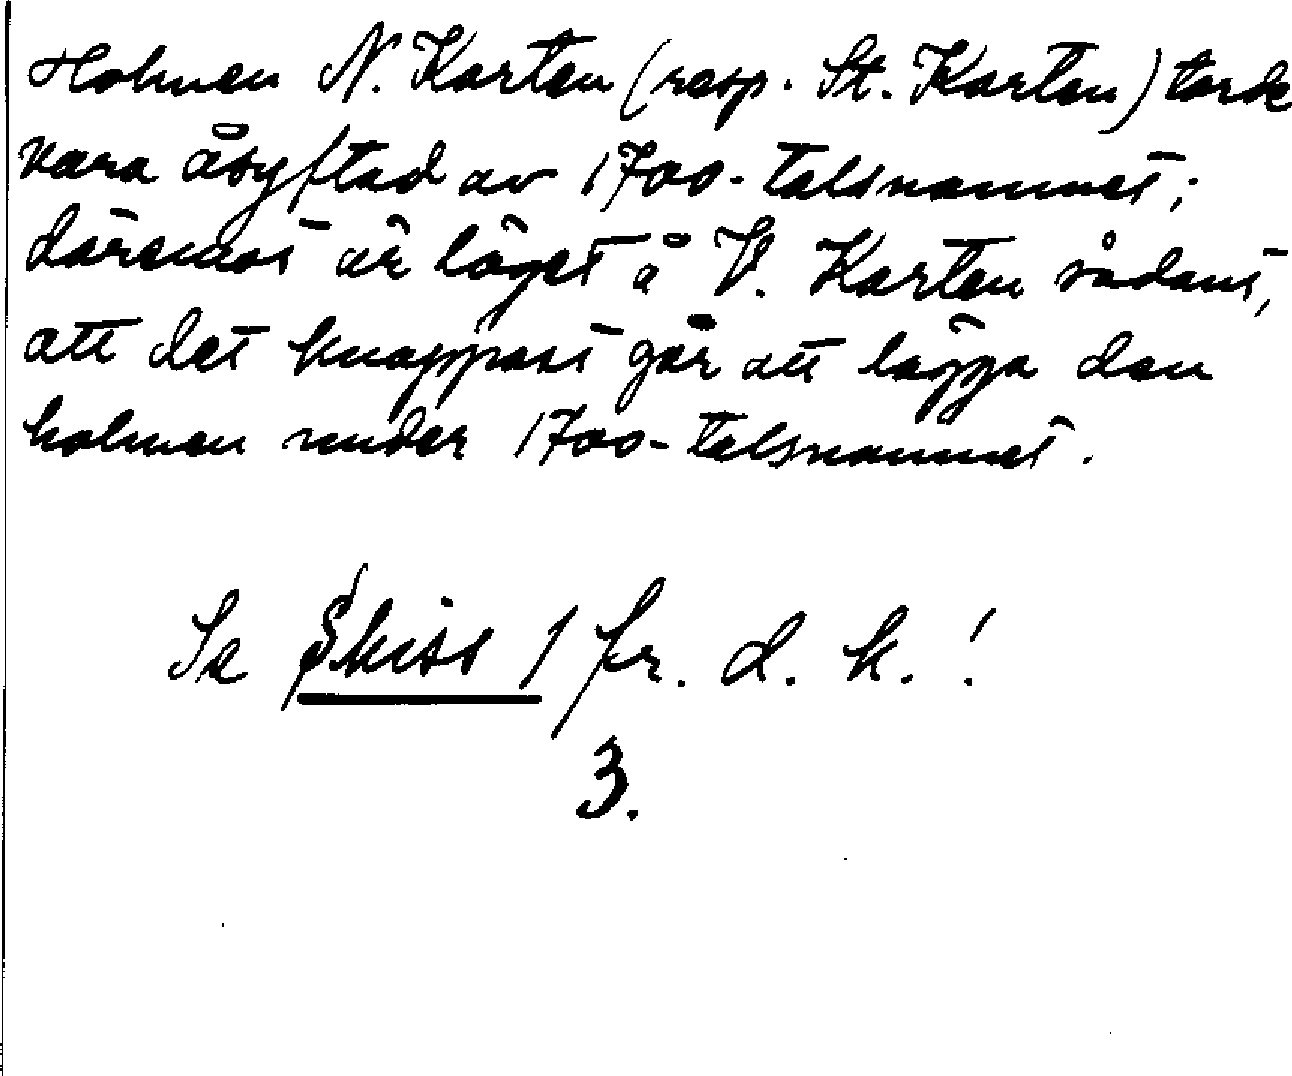 Holmen N. Karten (resp. St. Karten) torde
vara åsyftad av 1700-talsnamnet;
däremot är läget å V. Karten sådant,
att det knappast går att lägga den
holmen under 1700-talsnamnet.
Se Skiss 1 fr. d. k.!
3.